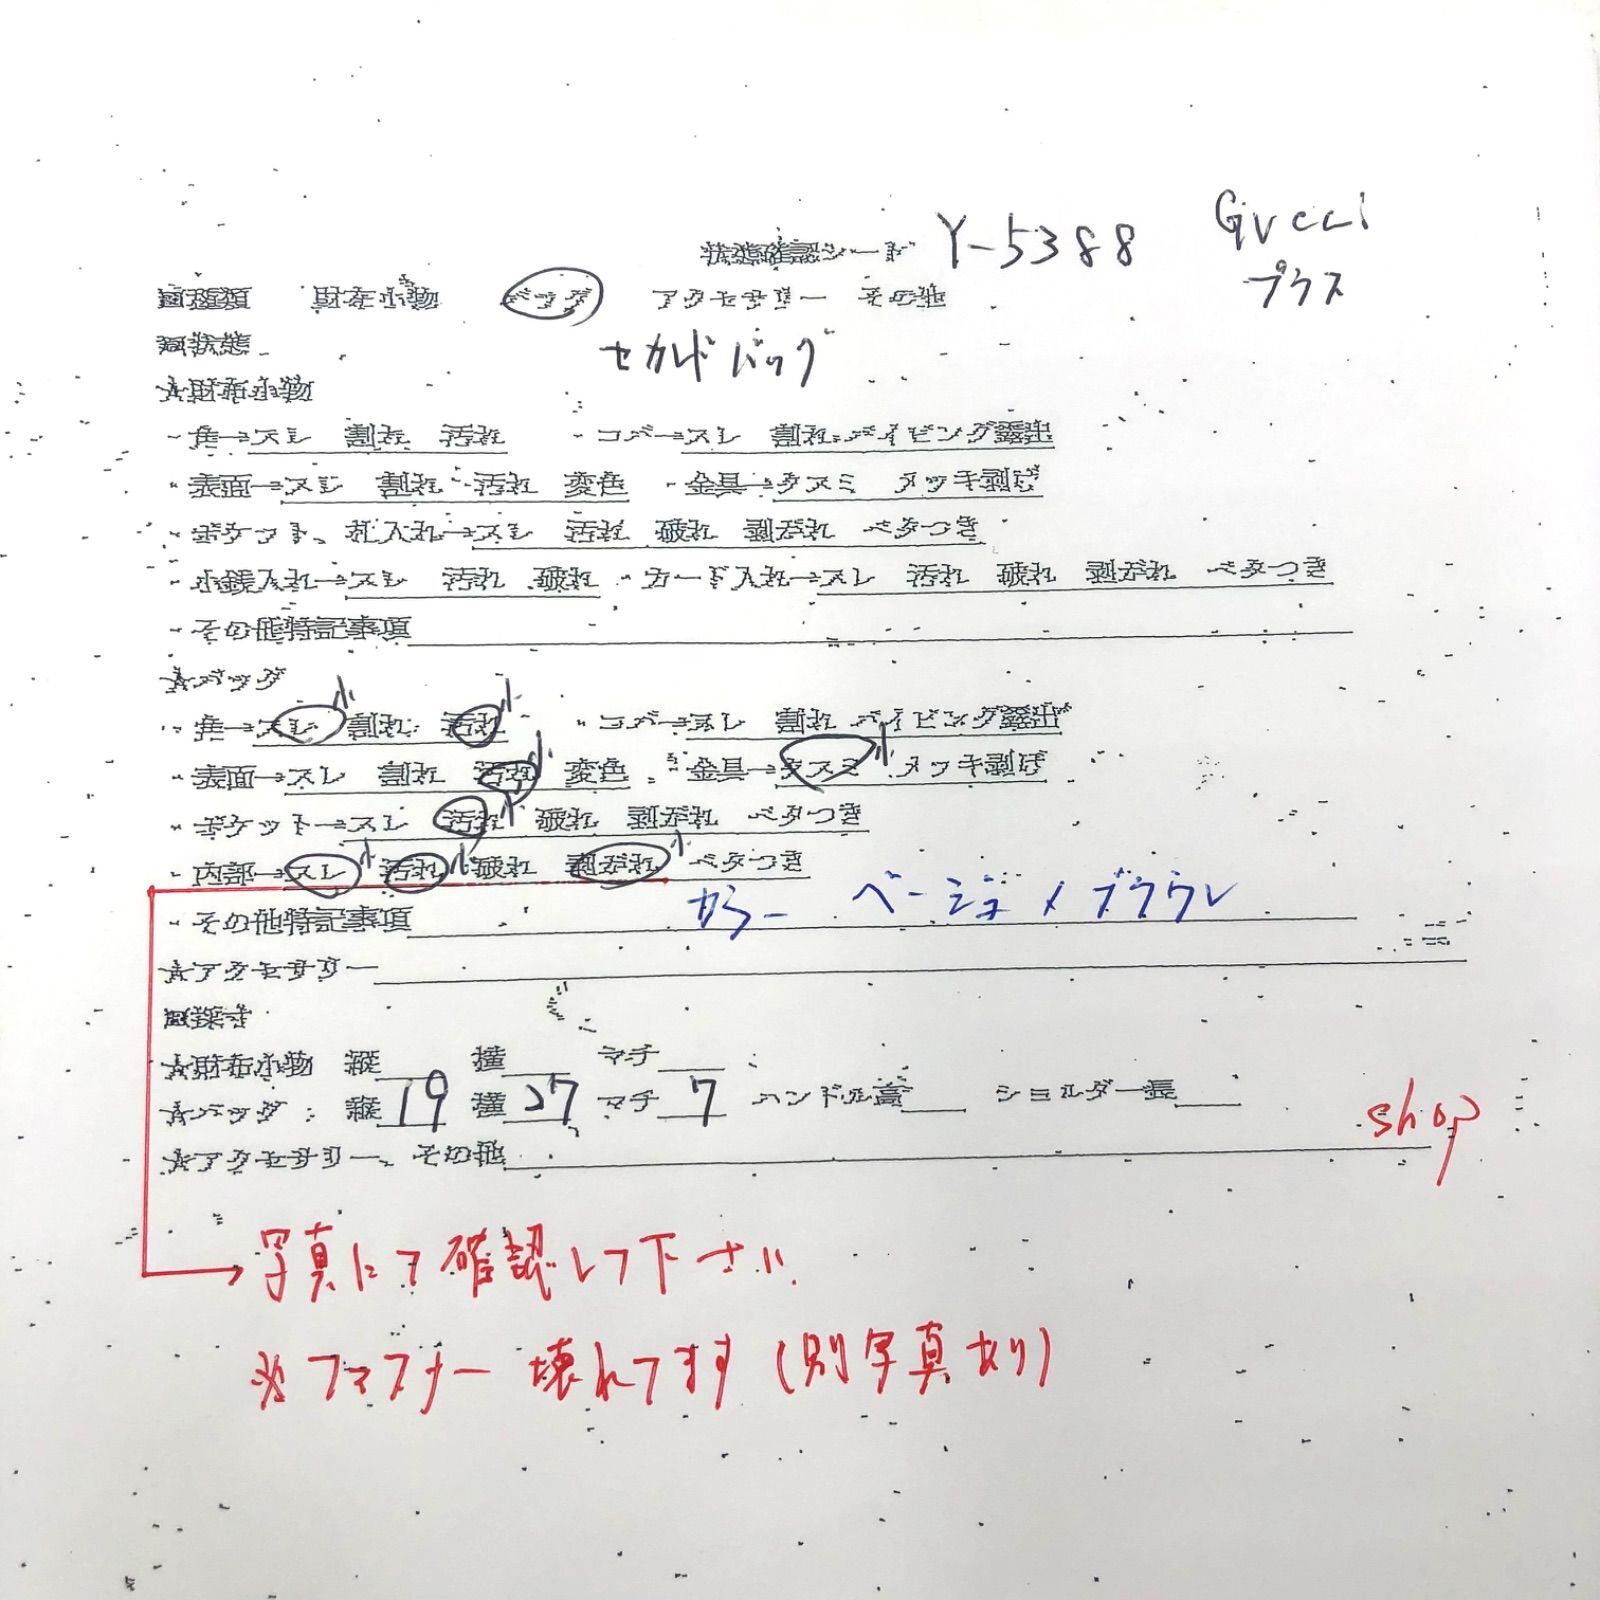 状態確認シード Y-5388 Gucci
プラス
■種類 財布小物 バッグ アクセサリー その他
■状態 セカンドバッグ
★財布小物
・角→スレ 割れ 汚れ ・コバ→スレ 割れ パイピング露出
・表面→スレ 割れ 汚れ 変色 ・金具→クスミ メッキ剥げ
・ポケット、札入れ→スレ 汚れ 破れ 剥がれ ベタつき
・小銭入れ→スレ 汚れ 破れ ・カード入れ→スレ 汚れ 破れ 剥がれ ベタつき
・その他特記事項
★バッグ
・角→スレ小 割れ 汚れ小 ・コバ→スレ 割れ パイピング露出
・表面→スレ 割れ 汚れ小 変色 ・金具→クスミ小 メッキ剥げ
・ポケット→スレ 汚れ小 破れ 剥がれ ベタつき
・内部→スレ小 汚れ小 破れ 剥がれ小 ベタつき
・その他特記事項 カラー ベージュ×ブラウン
★アクセサリー
■採寸
★財布小物 縦 横 マチ
★バッグ：縦19 横27 マチ7 ハンドル高 ショルダー長
★アクセサリー、その他
shop
写真にて確認して下さい
※ファスナー壊れてます(別写真あり)